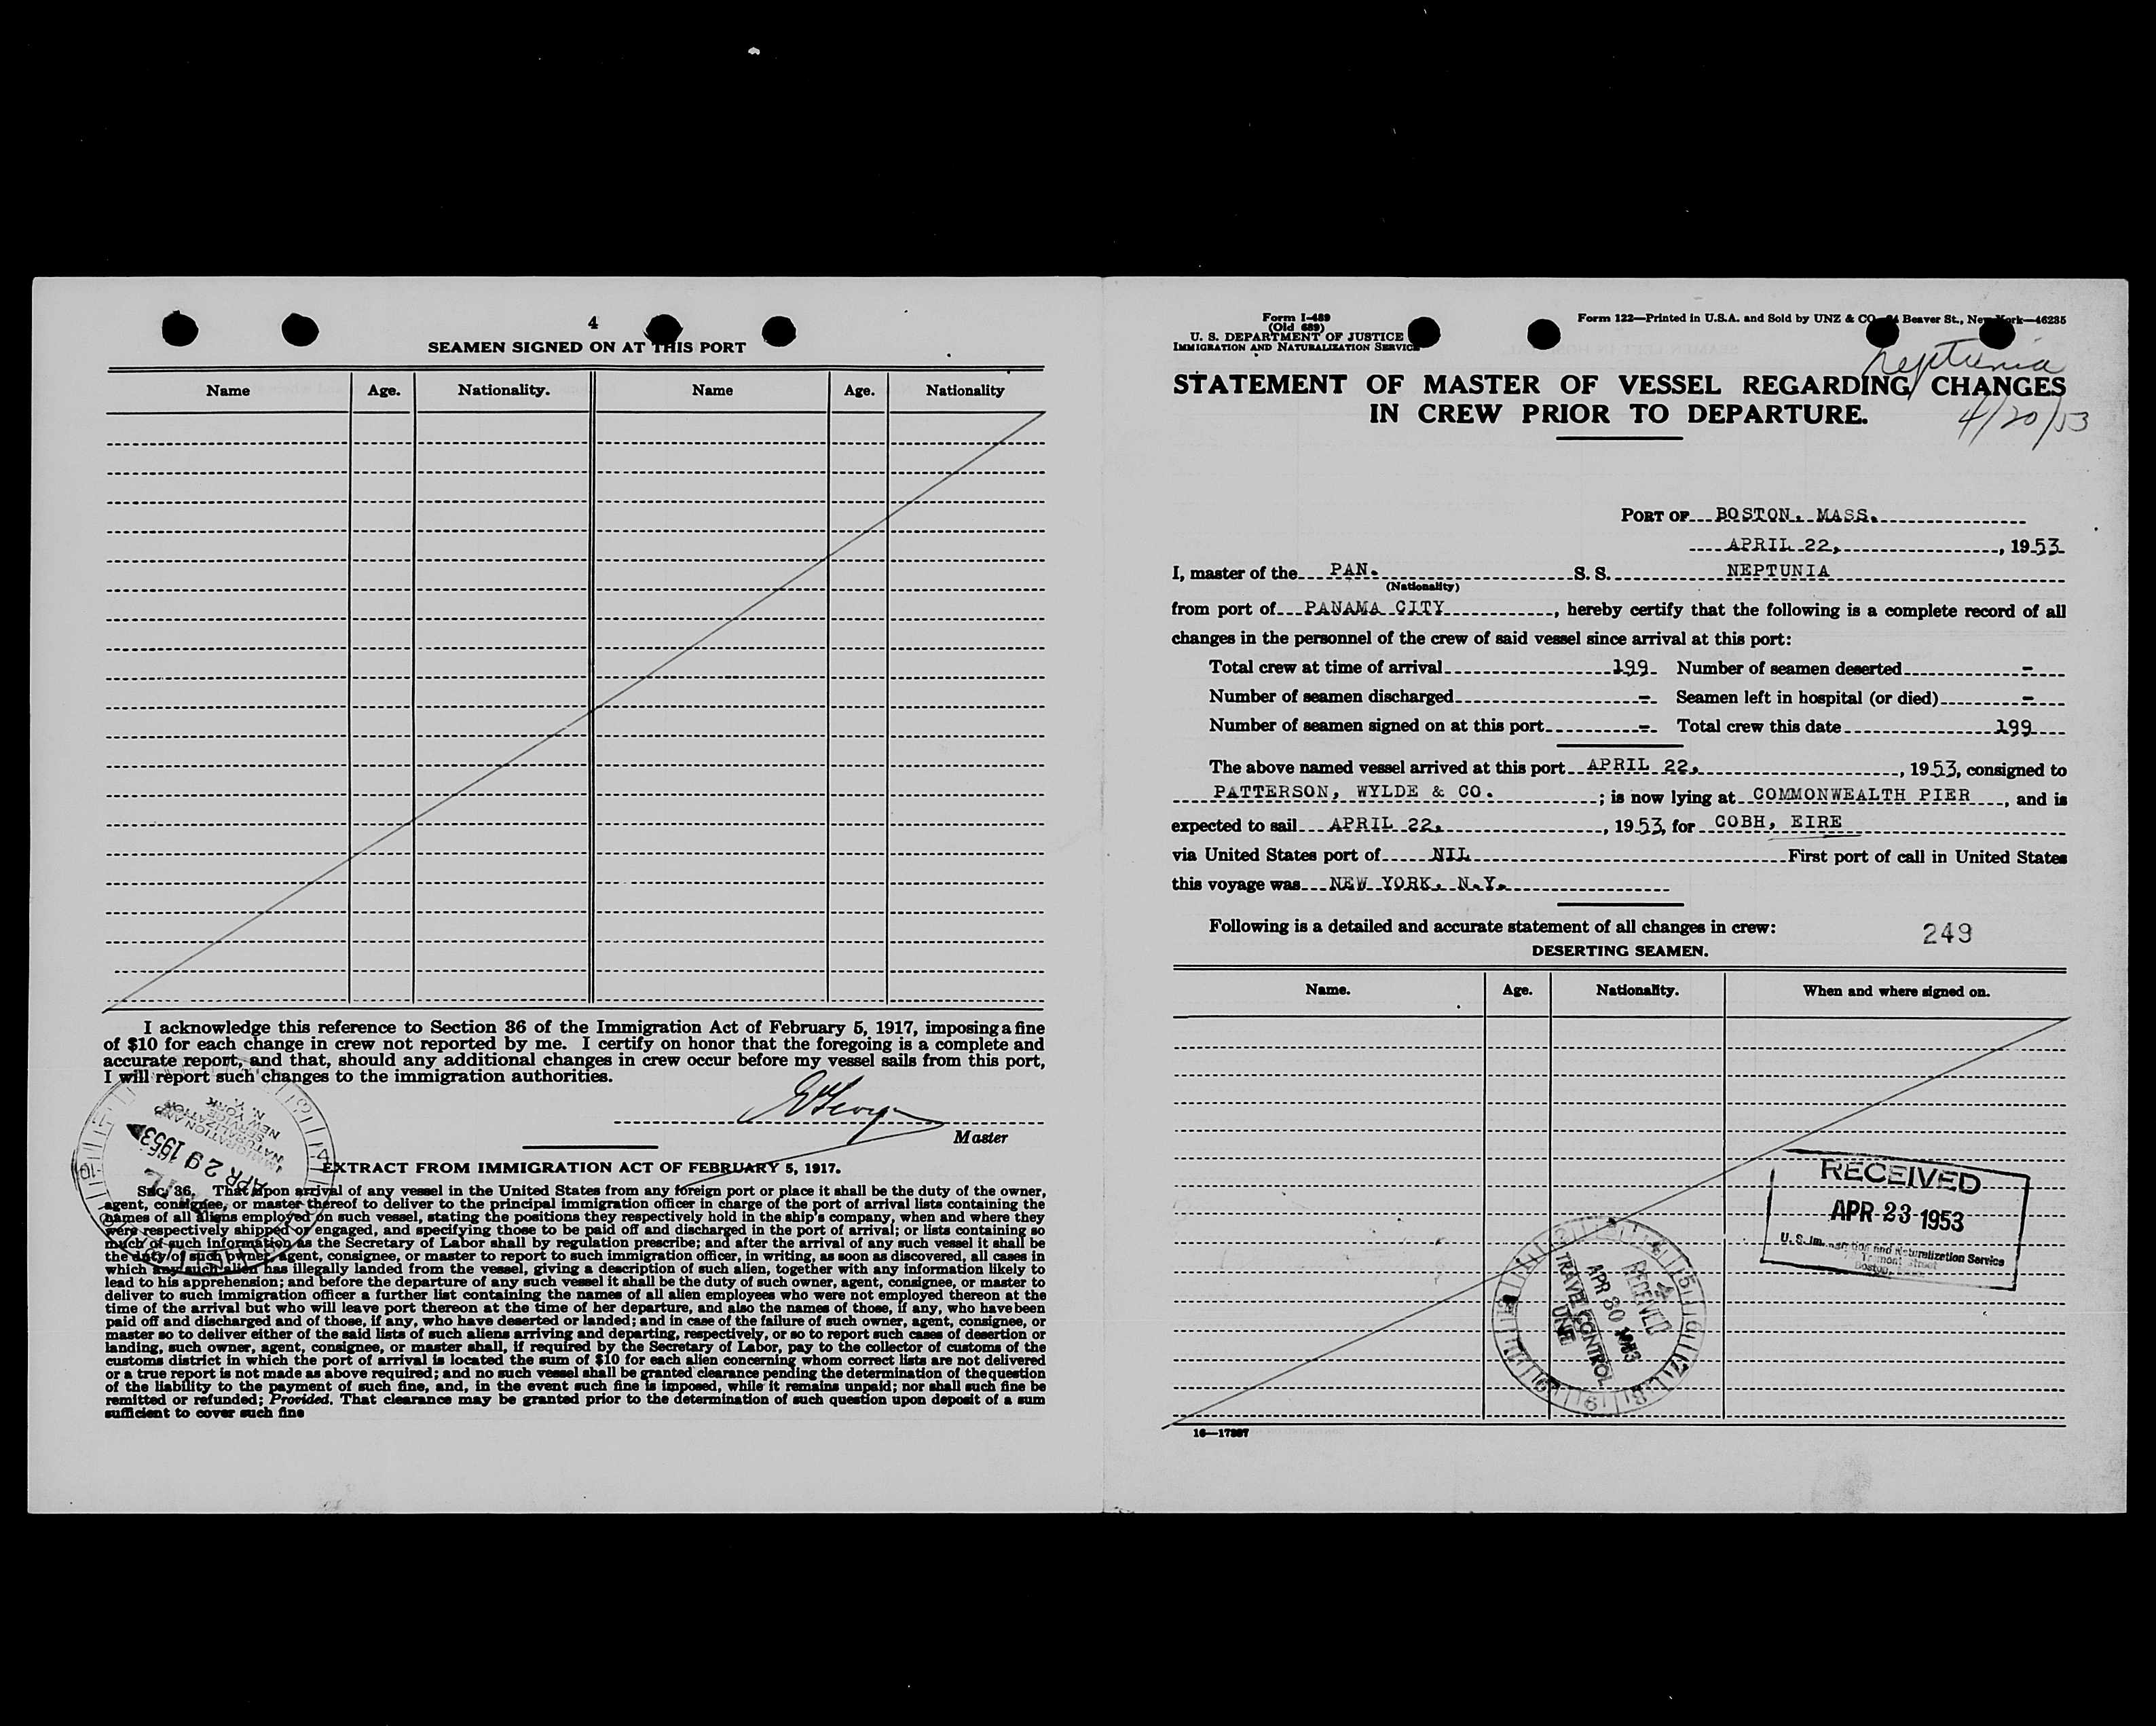 4
SEAMEN SIGNED ON AT THIS PORT
Name Age. Nationality. Name Age. Nationality
I acknowledge this reference to Section 36 of the Immigration Act of February 5, 1917, imposing a fine
of $10 for each change in crew not reported by me. I certify on honor that the foregoing is a complete and
accurate report, and that, should any additional changes in crew occur before my vessel sails from this port,
I will report such changes to the immigration authorities.
Master
IMMIGRATION AND
NATURALIZATION
SERVICE
NEW YORK
N. Y.
APR 29 1953
EXTRACT FROM IMMIGRATION ACT OF FEBRUARY 5, 1917.
SEC. 36. That upon arrival of any vessel in the United States from any foreign port or place it shall be the duty of the owner,
agent, consignee, or master thereof to deliver to the principal immigration officer in charge of the port of arrival lists containing the
names of all aliens employed on such vessel, stating the positions they respectively hold in the ship's company, when and where they
were respectively shipped or engaged, and specifying those to be paid off and discharged in the port of arrival; or lists containing so
much of such information as the Secretary of Labor shall by regulation prescribe; and after the arrival of any such vessel it shall be
the duty of such owner, agent, consignee, or master to report to such immigration officer, in writing, as soon as discovered, all cases in
which any such alien has illegally landed from the vessel, giving a description of such alien, together with any information likely to
lead to his apprehension; and before the departure of any such vessel it shall be the duty of such owner, agent, consignee, or master to
deliver to such immigration officer a further list containing the names of all alien employees who were not employed thereon at the
time of the arrival but who will leave port thereon at the time of her departure, and also the names of those, if any, who have been
paid off and discharged and of those, if any, who have deserted or landed; and in case of the failure of such owner, agent, consignee, or
master so to deliver either of the said lists of such aliens arriving and departing, respectively, or so to report such cases of desertion or
landing, such owner, agent, consignee, or master shall, if required by the Secretary of Labor, pay to the collector of customs of the
customs district in which the port of arrival is located the sum of $10 for each alien concerning whom correct lists are not delivered
or a true report is not made as above required; and no such vessel shall be granted clearance pending the determination of the question
of the liability to the payment of such fine, and, in the event such fine is imposed, while it remains unpaid; nor shall such fine be
remitted or refunded; Provided, That clearance may be granted prior to the determination of such question upon deposit of a sum
sufficient to cover such fine
Form I-489
(Old 689)
U. S. DEPARTMENT OF JUSTICE
IMMIGRATION AND NATURALIZATION SERVICE
Form 122—Printed in U.S.A. and Sold by UNZ & CO. 24 Beaver St., New York—46285
Neptunia
STATEMENT OF MASTER OF VESSEL REGARDING CHANGES
IN CREW PRIOR TO DEPARTURE.
4/20/53
PORT OF BOSTON, MASS.
APRIL 22, , 1953
I, master of the PAN. S. S. NEPTUNIA
(Nationality)
from port of PANAMA CITY , hereby certify that the following is a complete record of all
changes in the personnel of the crew of said vessel since arrival at this port:
Total crew at time of arrival 199 Number of seamen deserted -
Number of seamen discharged - Seamen left in hospital (or died) -
Number of seamen signed on at this port - Total crew this date 199
The above named vessel arrived at this port APRIL 22, , 1953, consigned to
PATTERSON, WYLDE & CO. ; is now lying at COMMONWEALTH PIER , and is
expected to sail APRIL 22, , 1953, for COBH, EIRE
via United States port of NIL First port of call in United States
this voyage was NEW YORK, N.Y.
Following is a detailed and accurate statement of all changes in crew:
249
DESERTING SEAMEN.
Name. Age. Nationality. When and where signed on.
RECEIVED
APR 23 1953
U. S. Immigration and Naturalization Service
Boston,
RECEIVED
APR 30 1953
TRAVEL CONTROL
UNIT
16—17397